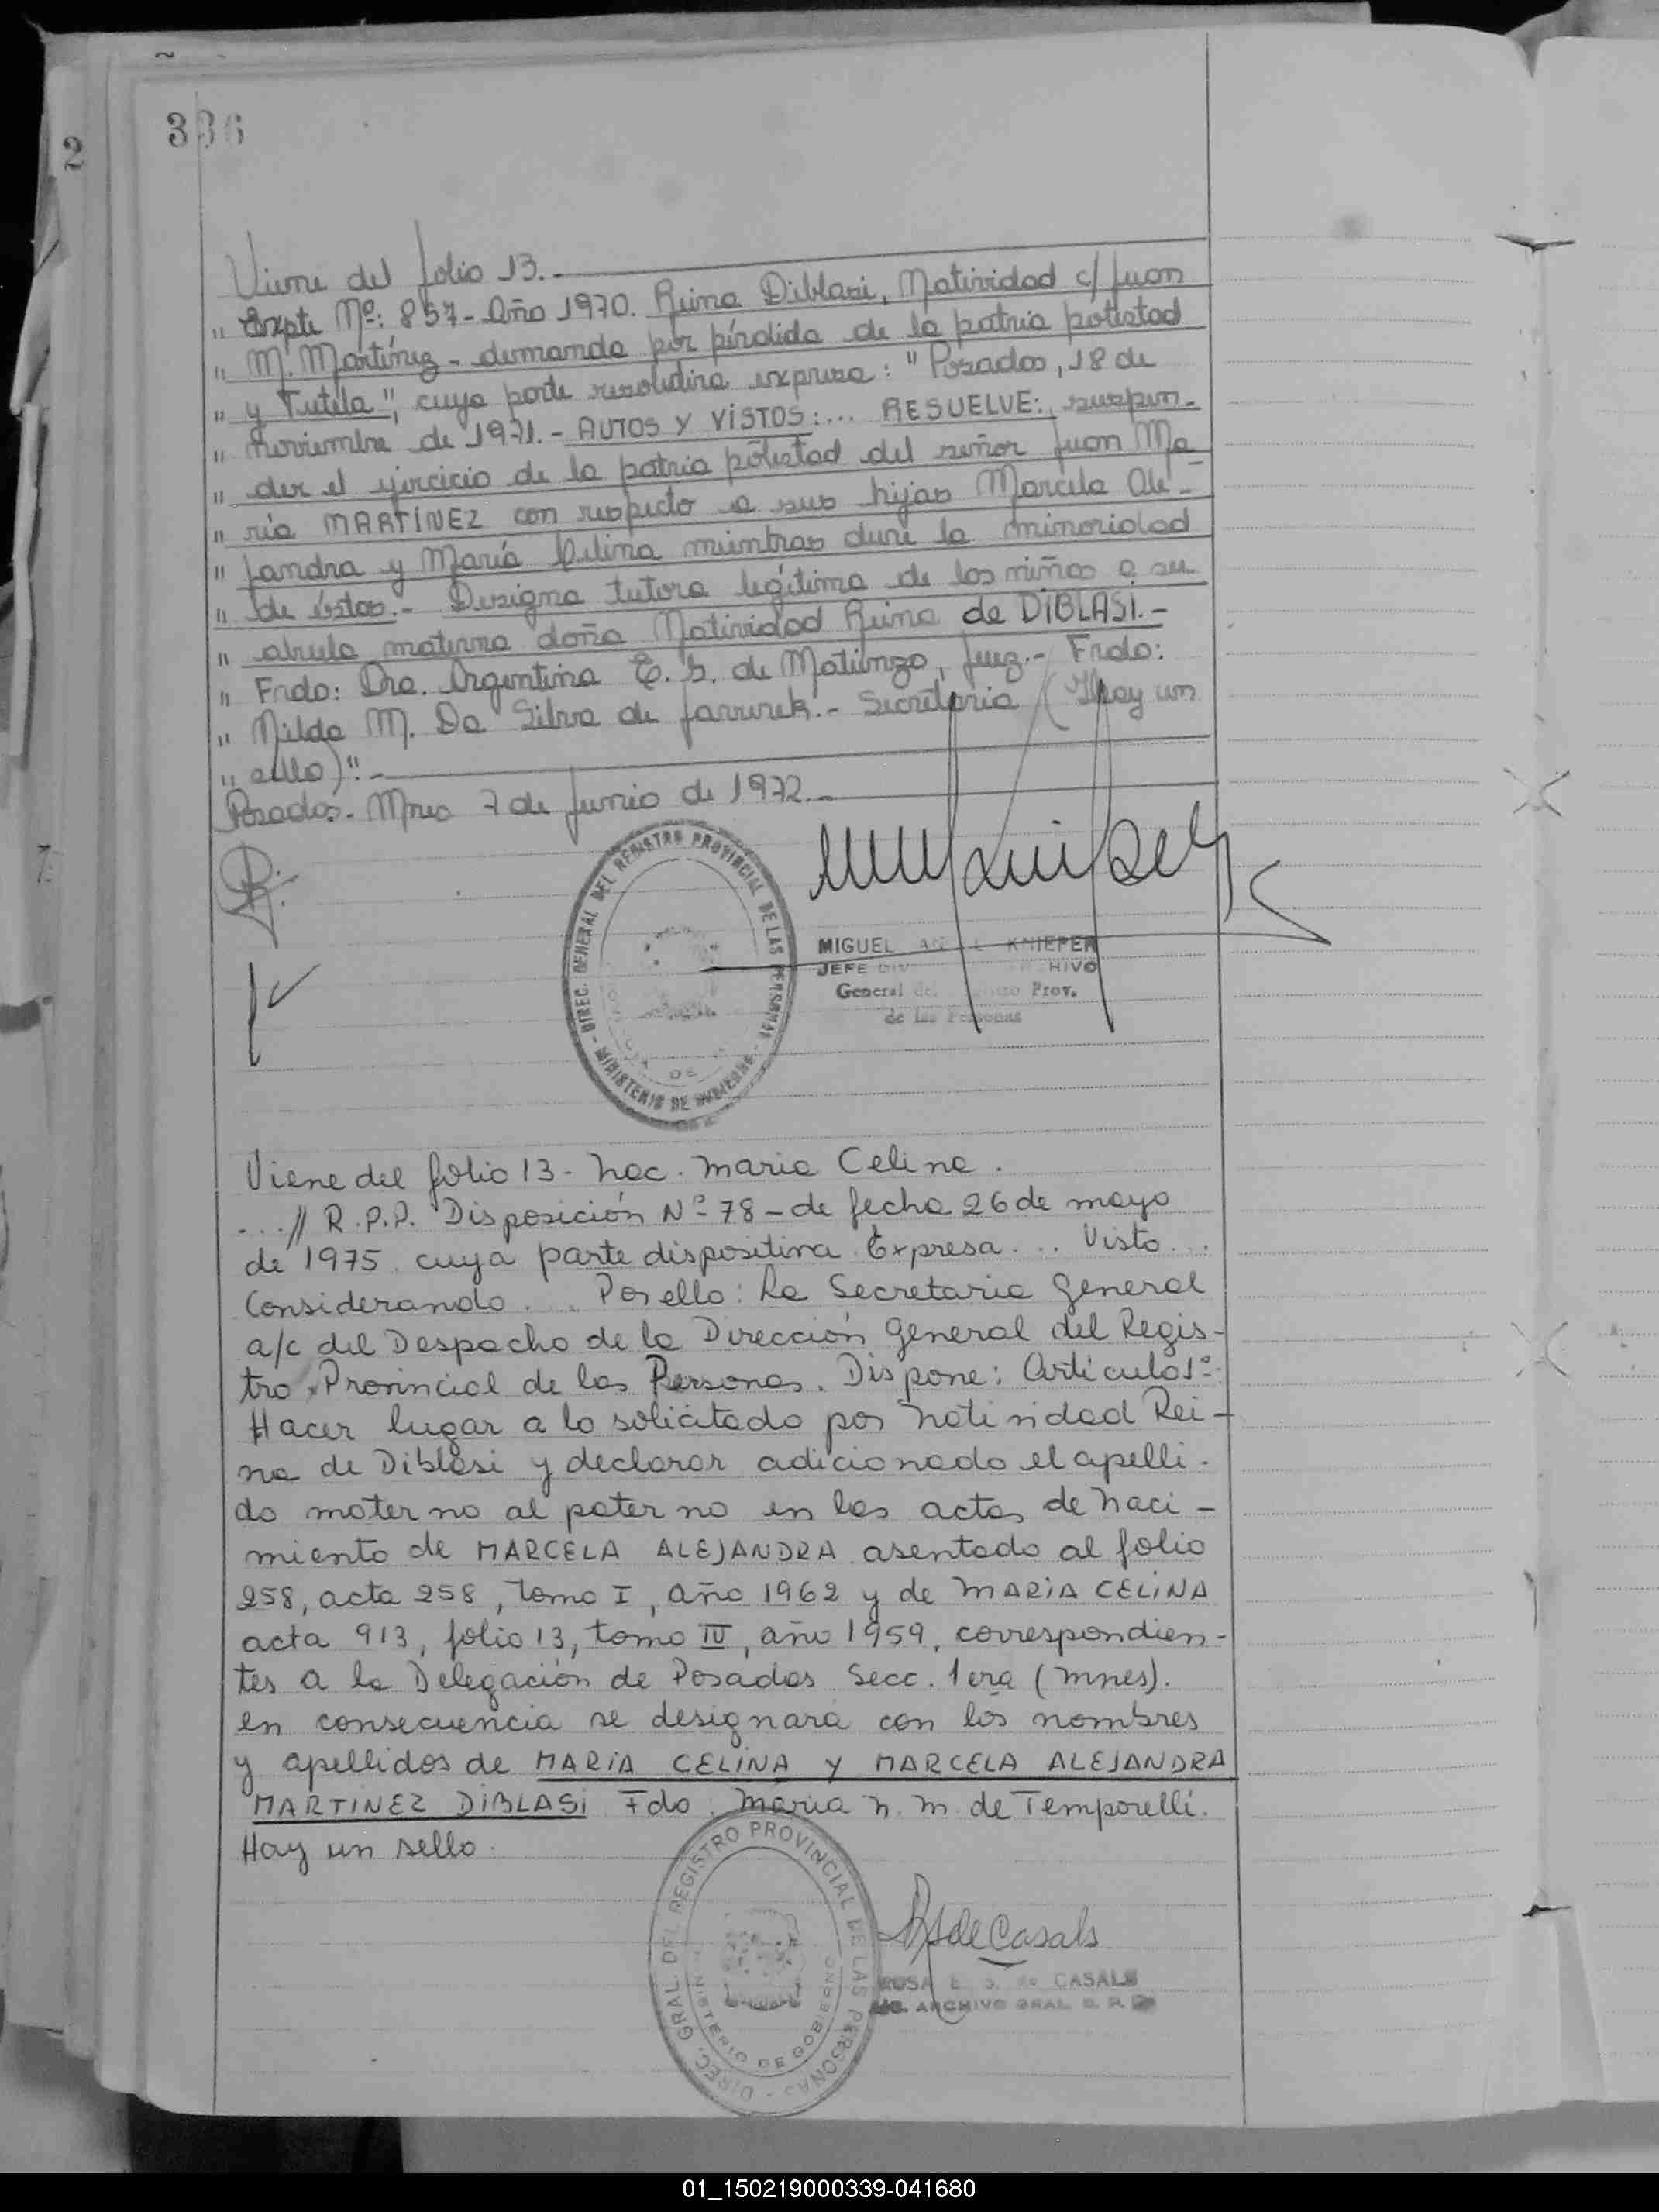 336
2
Viene del folio 13.-
" Expte Nº: 857- Año 1970. Reina Diblasi, Natividad c/ Juan
" M. Martínez - demanda por pérdida de la patria potestad
" y Tutela", cuya parte resolutiva expresa: "Posadas, 18 de
" noviembre de 1971.- AUTOS Y VISTOS:... RESUELVE: suspen-
" der el ejercicio de la patria potestad del señor Juan Ma-
" ría MARTÍNEZ con respecto a sus hijas Marcela Ale-
" jandra y María Celina mientras dure la minoridad
" de éstas.- Designa tutora legítima de los niños a su
" abuela materna doña Natividad Reina de DIBLASI.-
" Frdo: Dra. Argentina E. S. de Matienzo, Juez.- Frdo:
" Nilda M. Da Silva de - Secretaria (Hay un
" sello)".-
Posadas. Mnes 7 de Junio de 1972.-
DIREC. GENERAL DEL REGISTRO PROVINCIAL DE LAS PERSONAS - MINISTERIO DE GOBIERNO
MIGUEL KNIEPER
JEFE
General Prov.
de las Personas
Viene del folio 13- Nac. Maria Celina.
...// R.P.P. Disposición Nº 78 - de fecha 26 de mayo
de 1975 cuya parte dispositiva Expresa... Visto...
Considerando... Por ello: La Secretaria General
a/c del Despacho de la Dirección General del Regis-
tro Provincial de las Personas. Dispone: Artículo 1º-
Hacer lugar a lo solicitado por Natividad Rei-
na de Diblasi y declarar adicionado el apelli-
do materno al paterno en las actas de naci-
miento de MARCELA ALEJANDRA asentado al folio
258, acta 258, tomo I, año 1962 y de MARIA CELINA
acta 913, folio 13, tomo IV, año 1959, correspondien-
tes a la Delegación de Posadas Secc. 1era (Mnes).
en consecuencia se designara con los nombres
y apellidos de MARIA CELINA Y MARCELA ALEJANDRA
MARTINEZ DIBLASI Fdo. Maria N. M. de Temporelli.
Hay un sello.
DIREC. GRAL. DEL REGISTRO PROVINCIAL DE LAS PERSONAS - MINISTERIO DE GOBIERNO
de Casals
ROSA E. S. de CASALS
ARCHIVO GRAL.
01_150219000339-041680